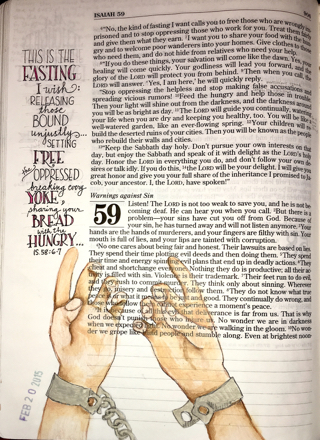 ISAIAH 59
THIS IS THE
FASTING
I wish:
RELEASING
those
BOUND
unjustly...
SETTING
FREE
the OPPRESSED
breaking every
YOKE;
sharing your
BREAD
with the
HUNGRY...
IS. 58:6-7
FEB 20 2015
"No, the kind of fasting I want calls you to free those who are wrongly
prisoned and to stop oppressing those who work for you. Treat them
and give them what they earn. I want you to share your food with the
gry and to welcome poor wanderers into your homes. Give clothes to
who need them, and do not hide from relatives who need your help.
"If you do these things, your salvation will come like the dawn. Yes,
healing will come quickly. Your godliness will lead you forward, and
glory of the LORD will protect you from behind. Then when you call, the
LORD will answer. 'Yes, I am here,' he will quickly reply.
"Stop oppressing the helpless and stop making false accusations
spreading vicious rumors! Feed the hungry and help those in trouble.
Then your light will shine out from the darkness, and the darkness around
you will be as bright as day. The LORD will guide you continually,
when you are dry and keeping you healthy, too. You will be like
well-watered garden, like an ever-flowing spring. Your children will
build the deserted ruins of your cities. Then you will be known as the people
who rebuild their walls and cities.
"Keep the Sabbath day holy. Don't pursue your own interests on
day, but enjoy the Sabbath and speak of it with delight as the LORD's holy
day. Honor the LORD in everything you do, and don't follow your own
sires or talk idly. If you do this, the LORD will be your delight. I will give you
great honor and give you your full share of the inheritance I promised to
cob, your ancestor. I, the LORD, have spoken!"
Warnings against Sin
59 Listen! The LORD is not too weak to save you, and he is not
coming deaf. He can hear you when you call. But there is a
problem—your sins have cut you off from God. Because of
your sin, he has turned away and will not listen anymore. Your
hands are the hands of murderers, and your fingers are filthy with sin. Your
mouth is full of lies, and your lips are tainted with corruption.
No one cares about being fair and honest. Their lawsuits are based on lies.
They spend their time plotting evil deeds and then doing them. They spend
their time and energy spinning evil plans that end up in deadly actions.
cheat and shortchange everyone. Nothing they do is productive; all their
is filled with sin. Violence is their trademark. Their feet run to do evil,
and they rush to commit murder. They think only about sinning. Wherever
they go, misery and destruction follow them. They do not know what true
peace is or what it means to be just and good. They continually do wrong, and
those who follow them cannot experience a moment's peace.
It is because of all this evil that deliverance is far from us. That is why
God doesn't punish those who injure us. No wonder we are in darkness
when we expected light. No wonder we are walking in the gloom. No
der we grope like blind people and stumble along. Even at brightest noon